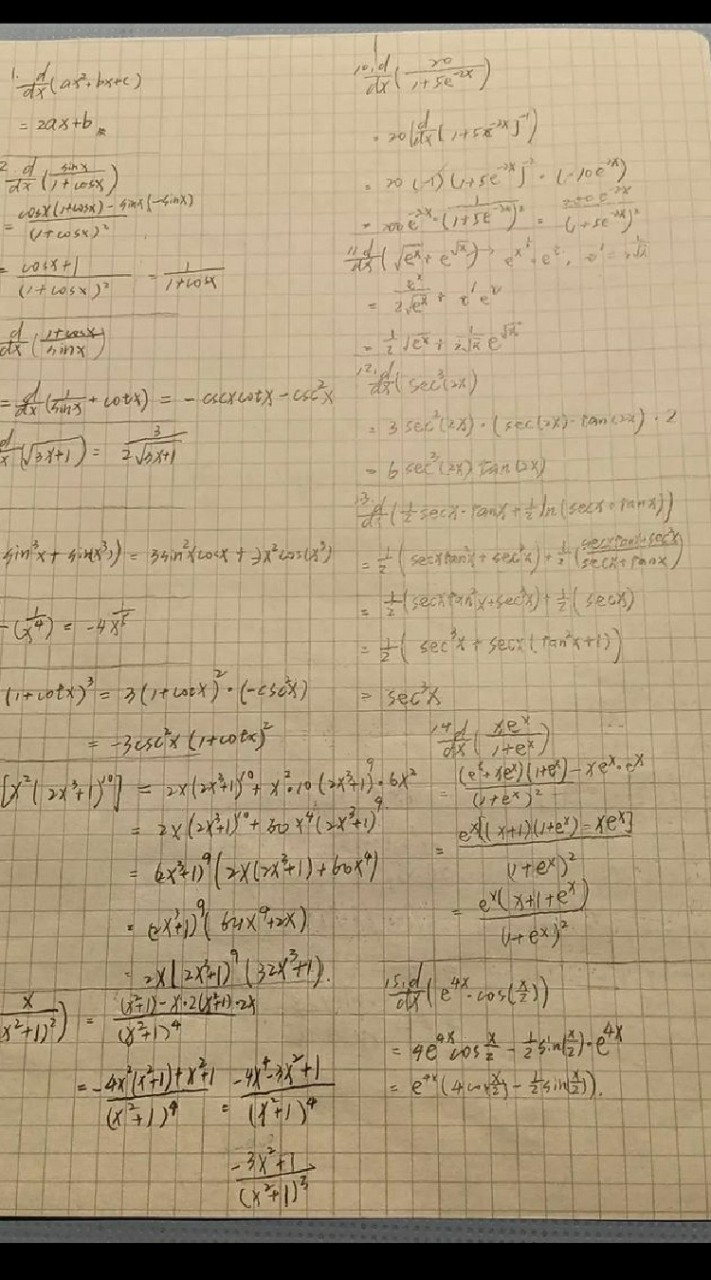 1. d/dx (ax²+bx+c)
= 2ax+b
2. d/dx (sinx/(1+cosx))
= (cosx(1+cosx) - sinx(-sinx))/(1+cosx)²
= (cosx+1)/(1+cosx)² = 1/(1+cosx)
d/dx ((1+cosx)/sinx)
= d/dx (1/sinx + cotx) = -cscxcotx - csc²x
d/x (√(3x+1)) = 3/(2√(3x+1))
sin³x + sin(x³)) = 3sin²x cosx + 3x²cos(x³)
(1/x⁴) = -4x
(1+cotx)³ = 3(1+cotx)²·(-csc²x)
= -3csc²x(1+cotx)²
[x²(2x³+1)¹⁰] = 2x(2x³+1)¹⁰ + x²·10(2x³+1)⁹·6x²
= 2x(2x³+1)¹⁰ + 60x⁴(2x³+1)⁹
= (2x³+1)⁹(2x(2x³+1)+60x⁴)
= (2x³+1)⁹(64x⁴+2x)
= 2x(2x³+1)⁹(32x³+1).
x/(x²+1)²) = ((x²+1) - x·2(x²+1)·2x)/(x²+1)⁴
= (-4x²(x²+1)+x²+1)/(x²+1)⁴ = (-4x⁴-3x²+1)/(x²+1)⁴
(-3x²+1)/(x²+1)³
10. d/dx (20/(1+5e^(-2x)))
= 20(d/dx (1+5e^(-2x))^(-1))
= 20(-1)(1+5e^(-2x))^(-2)·(-10e^(-2x))
= 200e^(-2x)·1/(1+5e^(-2x))² = 200e^(-2x)/(1+5e^(-2x))²
11. d/dx (√(e^x) + e^(√x))
= e^x/(2√(e^x)) +
= 1/2 √(e^x) + 1/(2√x) e^(√x)
12. d/dx (sec³(2x)
= 3sec²(2x)·(sec(2x)·tan(2x)·2
= 6sec³(2x)tan(2x)
13. d/dx (1/2 secx·tanx + 1/2 ln(secx+tanx))
= 1/2 (secxtan²x + sec³x) + 1/2 ((secxtanx+sec²x)/(secx+tanx))
= 1/2 (secxtan²x+sec³x) + 1/2 (secx)
= 1/2 (sec³x + secx(tan²x+1))
= sec³x
14. d/dx (xe^x/(1+e^x))
= ((e^x+xe^x)(1+e^x) - xe^x·e^x)/(1+e^x)²
= e^x[(x+1)(1+e^x) - xe^x]/(1+e^x)²
= e^x(x+1+e^x)/(1+e^x)²
15. d/dx (e^(4x)·cos(x/2))
= 4e^(4x)cos x/2 - 1/2 sin(x/2)·e^(4x)
= e^(4x)(4cos(x/2) - 1/2 sin(x/2)).